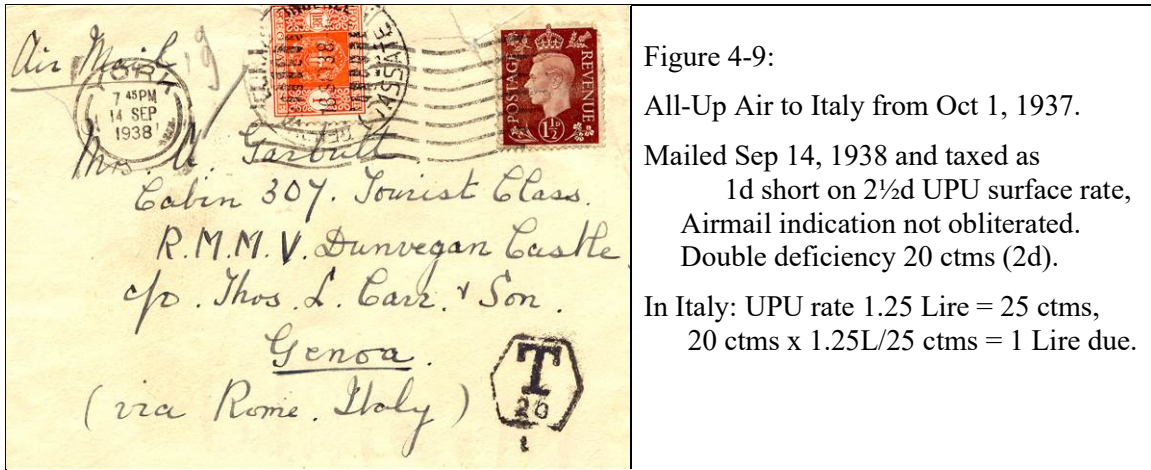 Air Mail
YORK
7 45PM
14 SEP
1938
POSTAGE
REVENUE
1½D
Mrs. A. Garbutt
Cabin 307. Tourist Class.
R.M.M.V. Dunvegan Castle
c/o. Thos. L. Carr. & Son.
Genoa.
(via Rome. Italy)
T
20
Figure 4-9:
All-Up Air to Italy from Oct 1, 1937.
Mailed Sep 14, 1938 and taxed as
1d short on 2½d UPU surface rate,
Airmail indication not obliterated.
Double deficiency 20 ctms (2d).
In Italy: UPU rate 1.25 Lire = 25 ctms,
20 ctms x 1.25L/25 ctms = 1 Lire due.